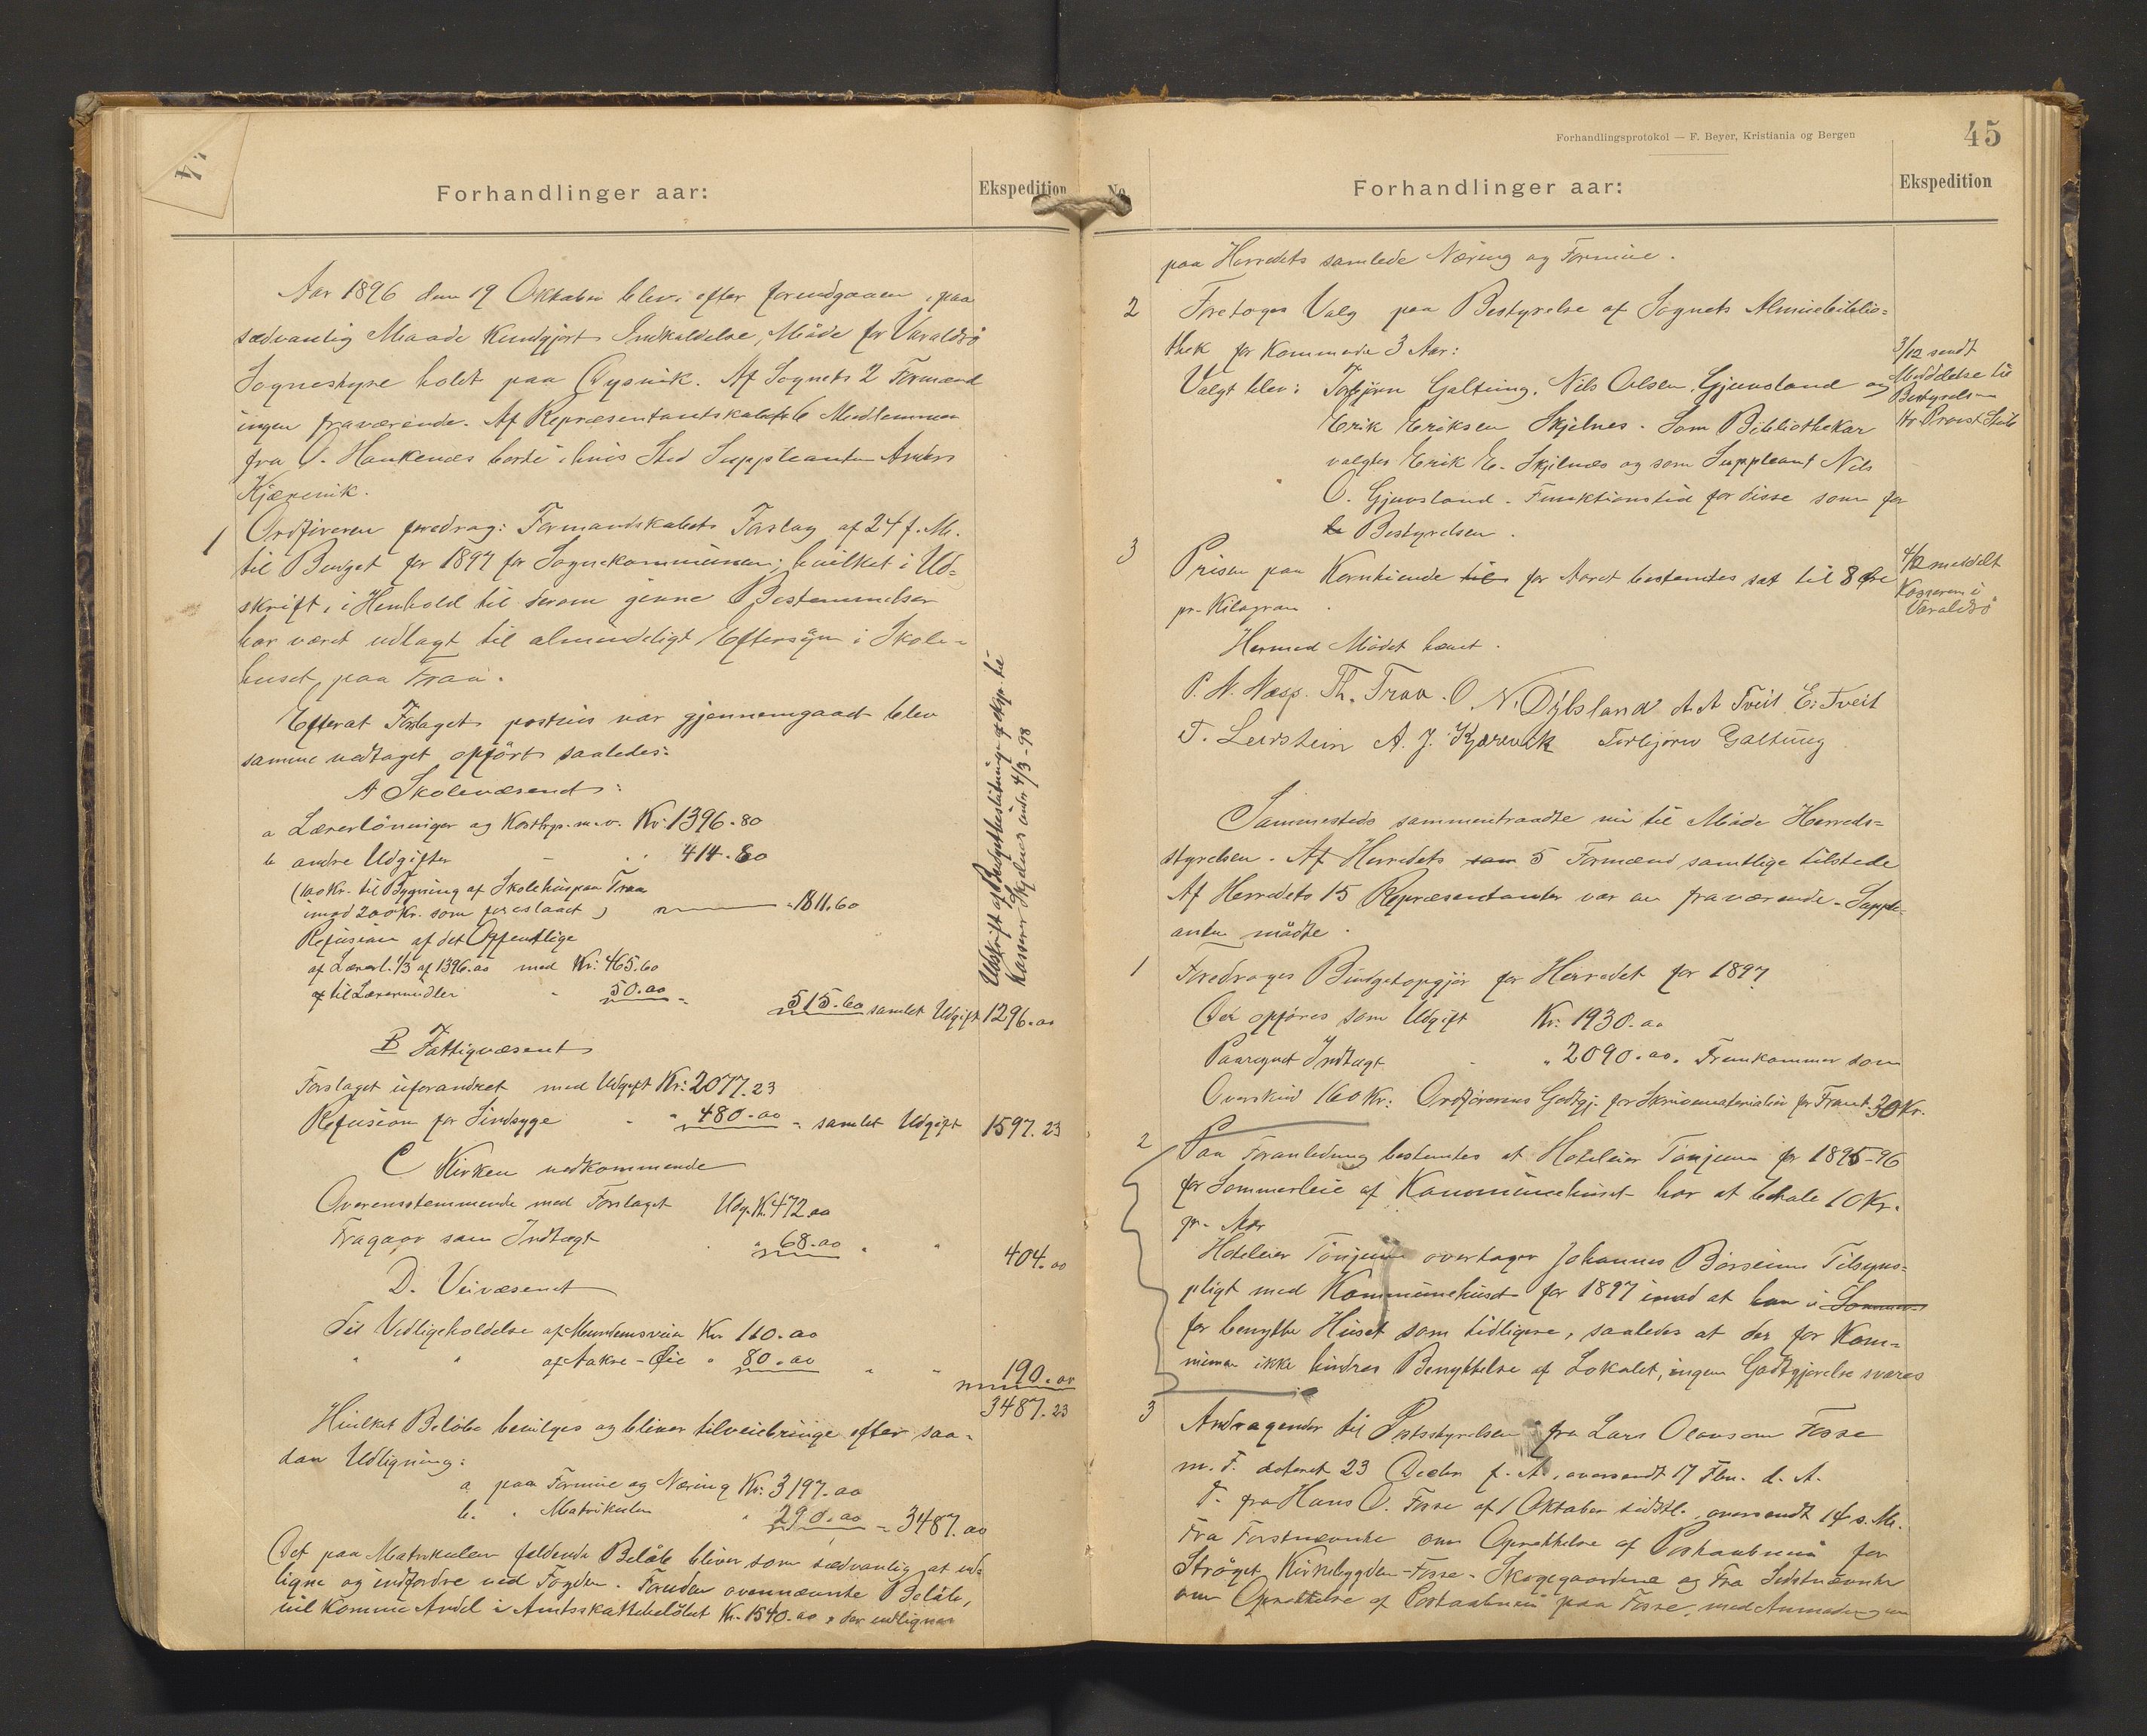 Forhandlinger aar:
Ekspedition
Aar 1896 den 19 Oktober blev, efter forudgaaen, paa
sædvanlig Maade kundgjort Indkaldelse, Möde for Varaldsö
Sognestyre holdt paa Øysvik. Af Sognets 2 Formænd
ingen fraværende. Af Repræsentantskabets 6 Medlemmer
fra O. Haukenæs borte i hvis Sted Suppleanten Anders
Kjærevik.
1
Ordföreren foredrog: Formandskabets Forslag af 24 f. M.
til Budget for 1897 for Sognekommunen; hvilket i Ud-
skrift, i Henhold til derom givne Bestemmelser
har været udlagt til almindeligt Eftersyn i Skole-
huset paa Traa.
Efterat Forslagets postvis var gjennemgaaet blev
samme vedtaget opfört saaledes:
A Skolevæsenet:
a Lærerlönninger og Kosthp. m. v. Kr. 1396.80
b andre Udgifter " 414.80
(100 Kr. til Bygning af Skolehus paa Traa
imod 200 Kr. som foreslaaet) 1811.60
Refusion af det Offentlige
af Lærerl. 1/3 af 1396.00 med Kr: 465.60
af til Læremidler " 50.00
515.60 samlet Udgift 1296.00
B Fattigvæsenet
Forslaget uforandret med Udgift Kr: 2077.23
Refusion for Sindsyge " " 480.00 " samlet Udgift 1597.23
C Kirken vedkommende
Overensstemmende med Forslaget Udg. Kr. 472.00
Fragaar som Indtægt " 68.00 " " 404.00
D. Veivæsenet
Til Vedligeholdelse af Mundemsveien Kr. 110.00
" " af Aakre-Øie " 80.00 " " 190.00
3487.23
Hvilket Beløb bevilges og bliver tilveiebringe efter saa-
dan Udligning:
a. paa Formue og Næring Kr: 3197.00
b. " Matrikulen " 290.00 = 3487.00
Det paa Matrikulen faldende Belöb bliver som sædvanlig at ud-
ligne og indfordre ved Fogden. Foruden ovennævnte Belöb,
vil komme Andel i Amtsskattebelöbet Kr. 1540.00, der udlignes
Udskrift af Budgetbeslutninger exp. til
Kasserer Skjelnes under 4/3-98
Forhandlingsprotokol — F. Beyer, Kristiania og Bergen
45
No
Forhandlinger aar:
Ekspedition
paa Herredets samlede Næring og Formue.
2
Foretoges Valg paa Bestyrelse af Sognets Almuebiblio-
thek for kommende 3 Aar:
Valgt blev: Torbjørn Galtung, Nils Olsen Gjuvsland og
Erik Eriksen Skjelnes. Som Bibliothekar
valgtes Erik E. Skjelnæs og som Suppleant Nils
O. Gjuvsland. Funktionstid for disse som for
be Bestyrelsen.
3/12 sendt
Meddelelse til
Bestyrelsen
Hr Provst
3
Prisen paa Korntiende til for Aaret bestemtes sat til 8 Øre
pr. Kilogram.
4/12 meddelt
Kasseren i
Varaldsö
Hermed Mödet hævet.
P. N. Næsp. Th. Traa. O N. Øylsland A. A Tveit E. Tveit
T. Leirstein A. J. Kjærevik Torbjørn Galtung
Sammesteds sammentraadte nu til Möde Herreds-
styrelsen. Af Herredets som 5 Formænd samtlige tilstede
Af Herredets 15 Repræsentanter var en fraværende. Supple-
anten mödte.
1
Foredroges Budgetopgjör for Herredet for 1897
Der opföres som Udgift Kr: 1930.00
Paaregnet Indtægt " 2090.00. Fremkommer som
Overskud 160 Kr: Ordförerens Godtgj. for Skrivematerialier 30 Kr.
2
Paa Foranledning bestemtes at Hoteleier Tönjum for 1895-96
for Sommerleie af Kommunehuset har at betale 10 Kr.
pr. Aar
Hoteleier Tönjum overtager Johannes Börseims Tilsyns-
pligt med Kommunehuset for 1897 imod at han i Sommer
for benytte Huset som tidligere, saaledes at der for Kom-
munen ikke hindres Benyttelse af Lokalet, ingen Godtgjørelse svares
3
Andragender til Postsstyrelsen fra Lars Olavson Fosse
m. F. dateret 23 Decbr f. A., oversendt 17 Fbr. d. A.
D. fra Hans O. Fosse af 1 Oktober sidstl. oversendt 14 s. M.
Fra Förstnævnte om Oprettelse af Postaabneri for
Ströget Kirkebygden-Fosse-Skogegaardene og fra Sidstnævnte
om Oprettelse af Postaabneri paa Fosse, med Anmodning om